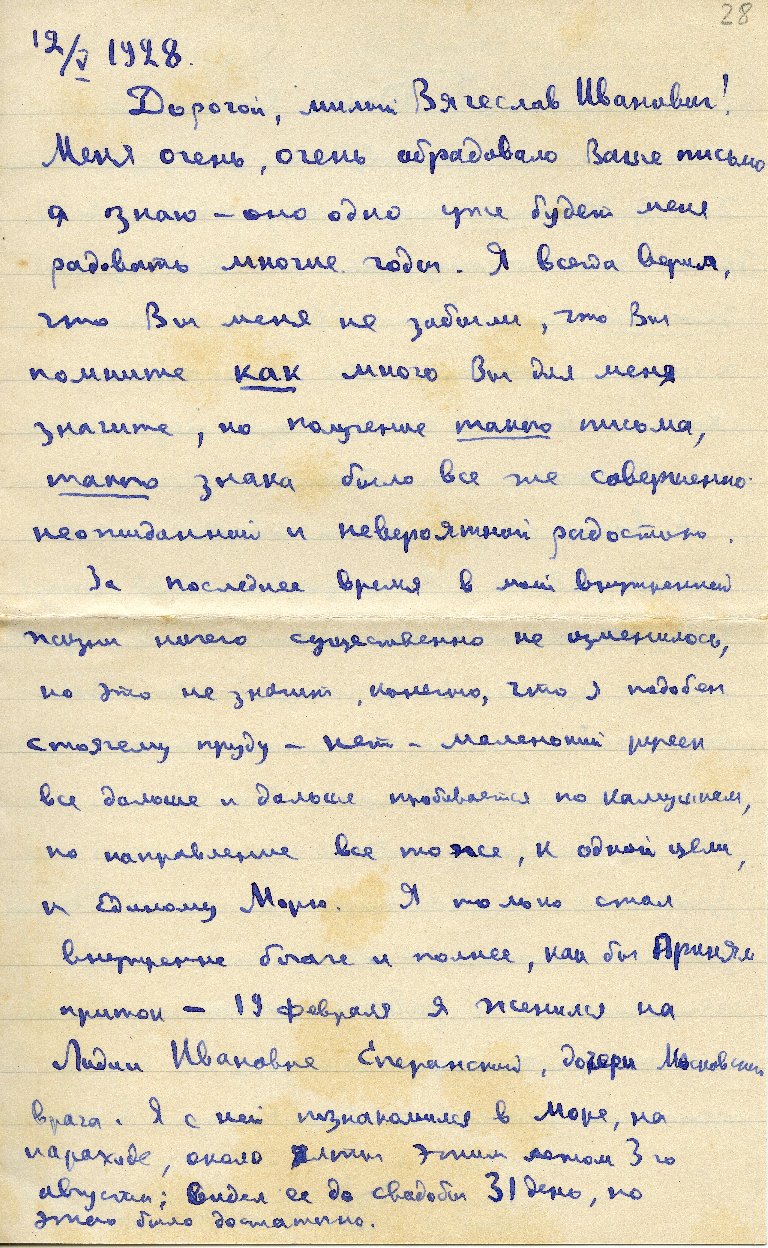 28
12/V 1928.
Дорогой, милый Вячеслав Иванович!
Меня очень, очень обрадовало Ваше письмо
я знаю – оно одно уже будет меня
радовать многие годы. Я всегда верил,
что Вы меня не забыли, что Вы
помните как много Вы для меня
значите, но получение такого письма,
такого знака было все же совершенно
неожиданной и невероятной радостью.
За последнее время в моей внутренней
жизни ничего существенно не изменилось,
но это не значит, конечно, что я подобен
стоячему пруду – нет – маленький ручеек
все дальше и дальше пробивается по камушкам,
но направление все тоже, к одной цели,
к Единому Морю. Я только стал
внутренне богаче и полнее, как бы принял
приток – 19 февраля я женился на
Лидии Ивановне Сперанской, дочери Московского
врача. Я с ней познакомился в Море, на
пароходе, около Ялты этим летом 3го
августа; видел ее до свадьбы 31 день, но
этого было достаточно.